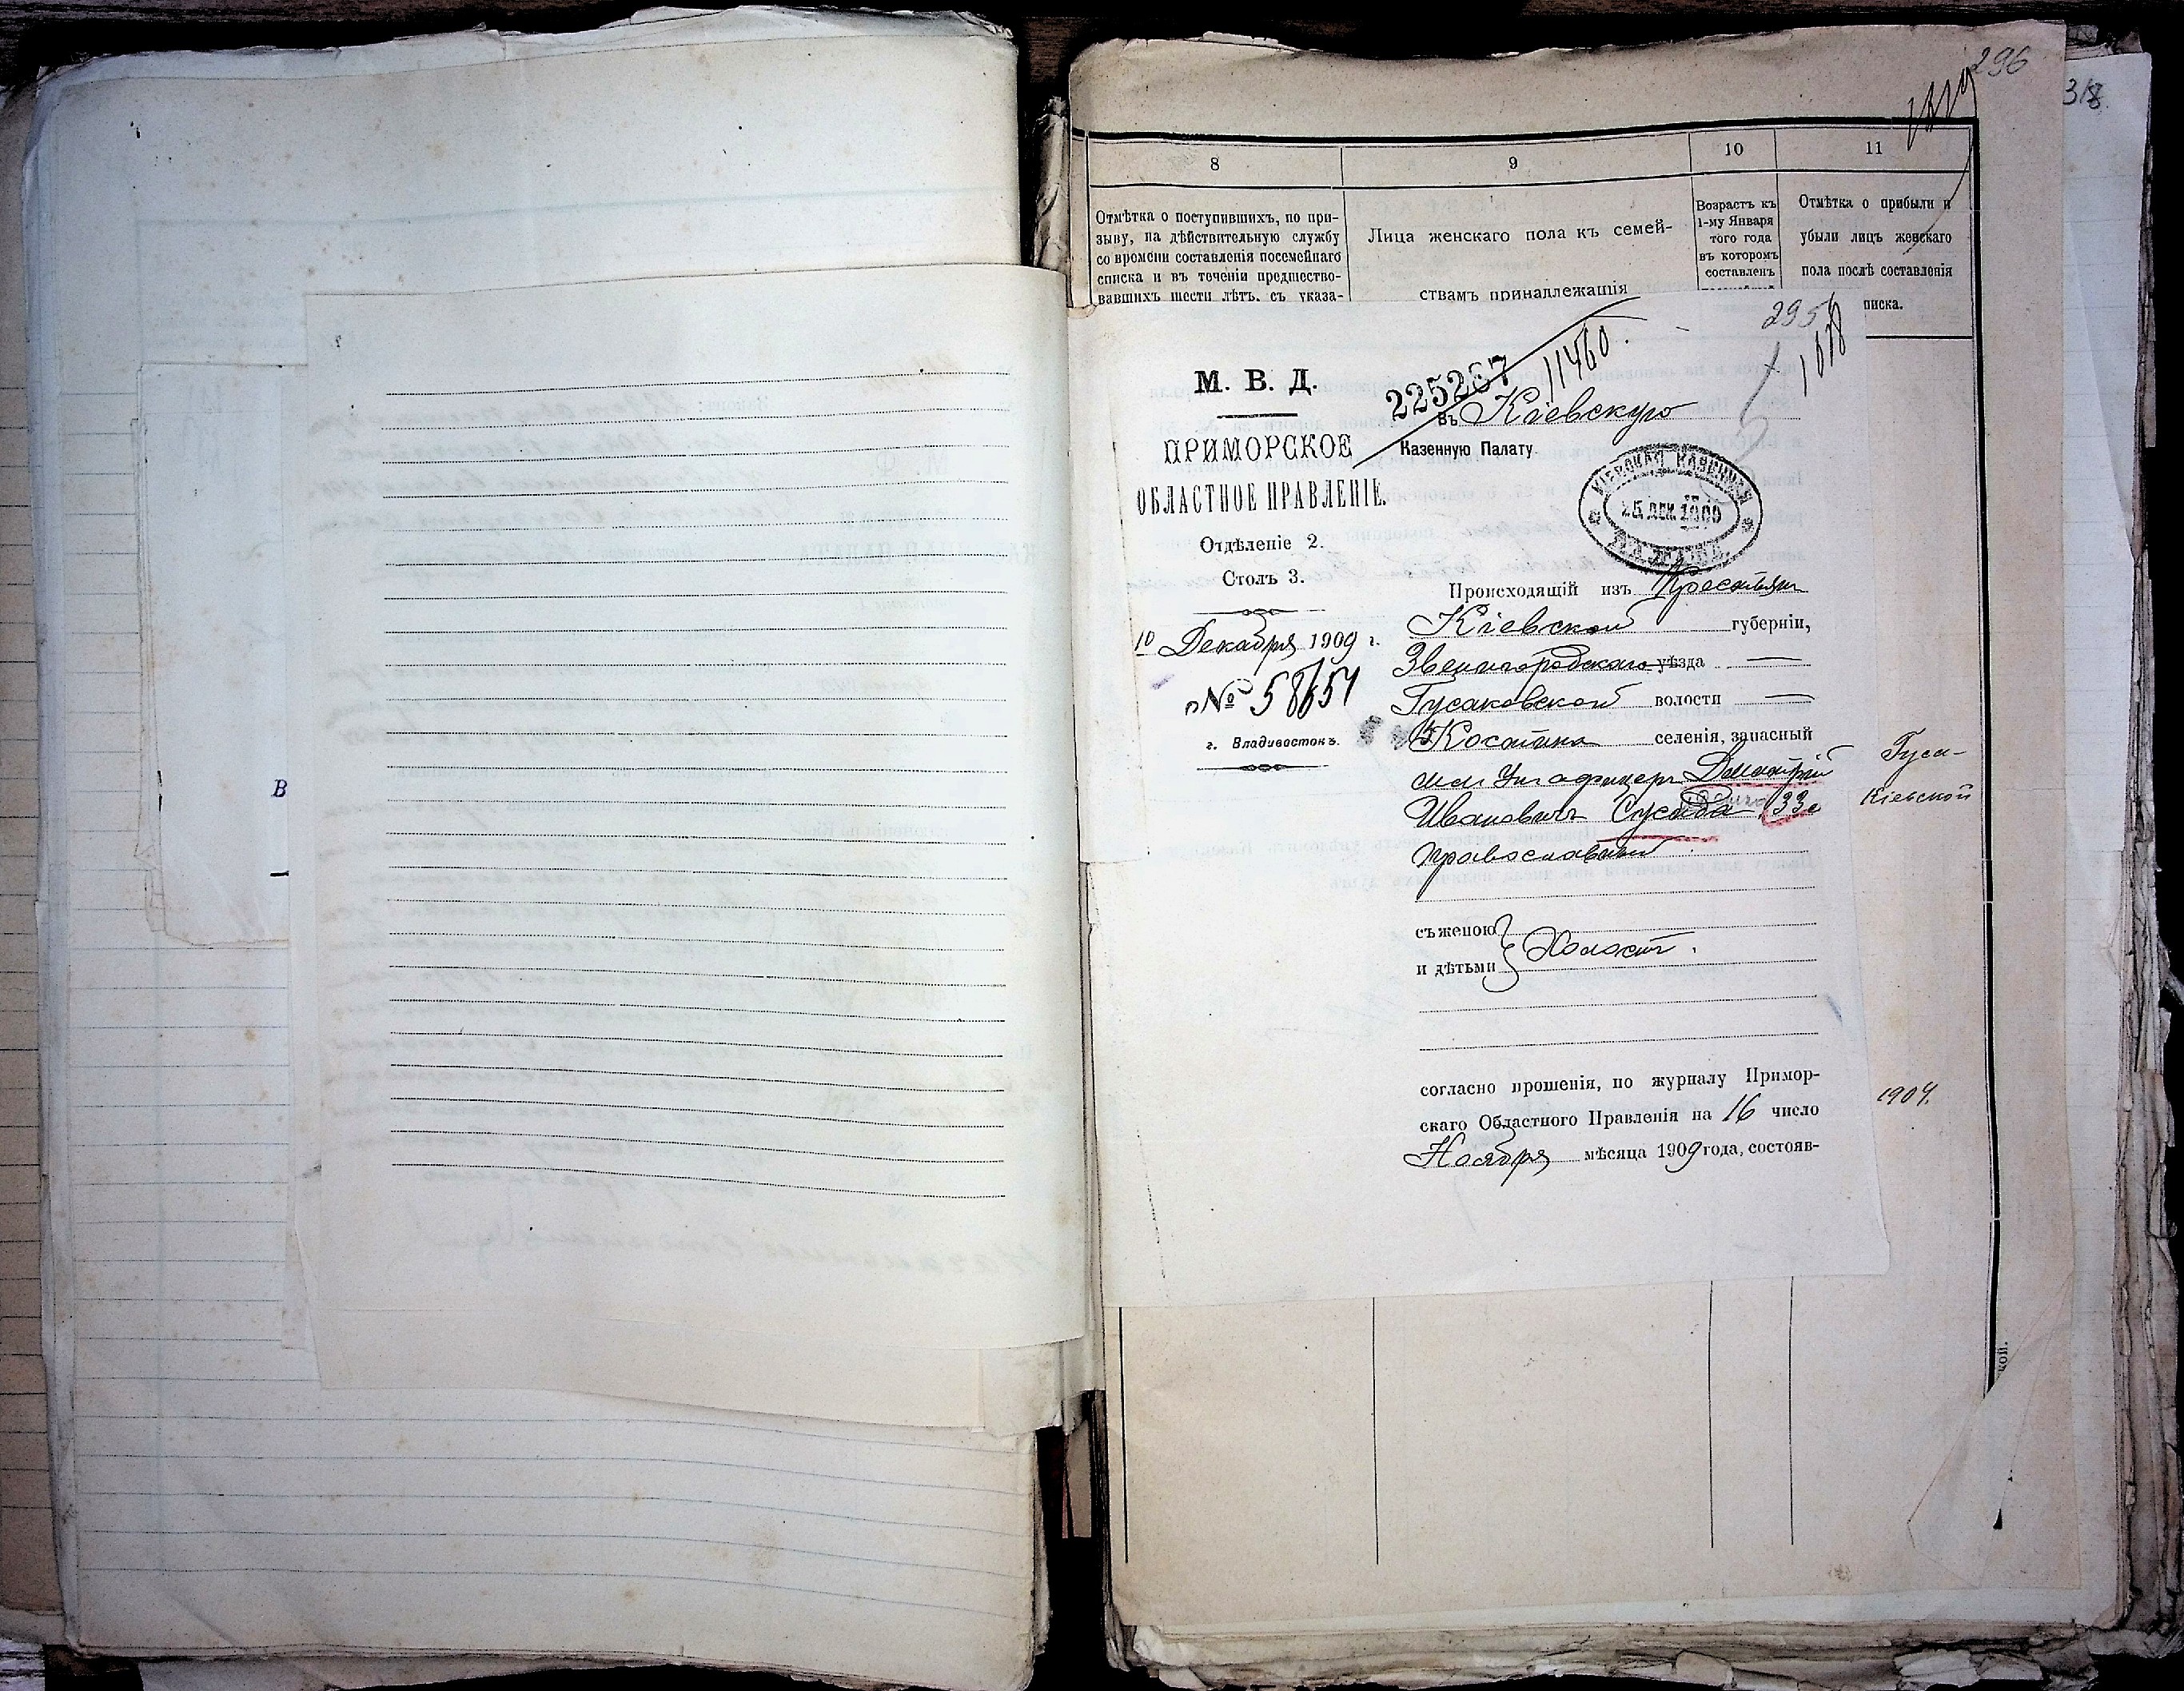 В
296
318.
8
9
10
11
Отмѣтка о поступившихъ, по при-
зыву, на дѣйствительную службу
со времени составленія посемейнаго
списка и въ теченіи предшество-
вавшихъ шести лѣтъ, съ указа-
Лица женскаго пола къ семей-
ствамъ принадлежащія
Возрастъ къ
1-му Января
того года
въ которомъ
составленъ
Отмѣтка о прибыли и
убыли лицъ женскаго
пола послѣ составленія
писка.
295
1018
М. В. Д.
ПРИМОРСКОЕ
ОБЛАСТНОЕ ПРАВЛЕНІЕ.
Отдѣленіе 2.
Столъ 3.
10 Декабря 1909 г.
№ 58651
г. Владивостокъ.
225267
11460.
Въ Кіевскую
Казенную Палату
КІЕВСКАЯ КАЗЕННАЯ
25 ДЕК 1909
ПАЛАТА
Происходящій изъ Крестьян
Кіевской губерніи,
Звенигородскаго уѣзда —
Гусаковской волости —
Косатина селенія, запасный
мл. Унт офицеръ Дмитрій
Ивановичъ Сусида 33 л
православный
съ женою
и дѣтьми } Холостъ.
согласно прошенія, по журналу Примор-
скаго Областного Правленія на 16 число
Ноября мѣсяца 1909 года, состояв-
Гуса-
Кіевской
1904.
кой.